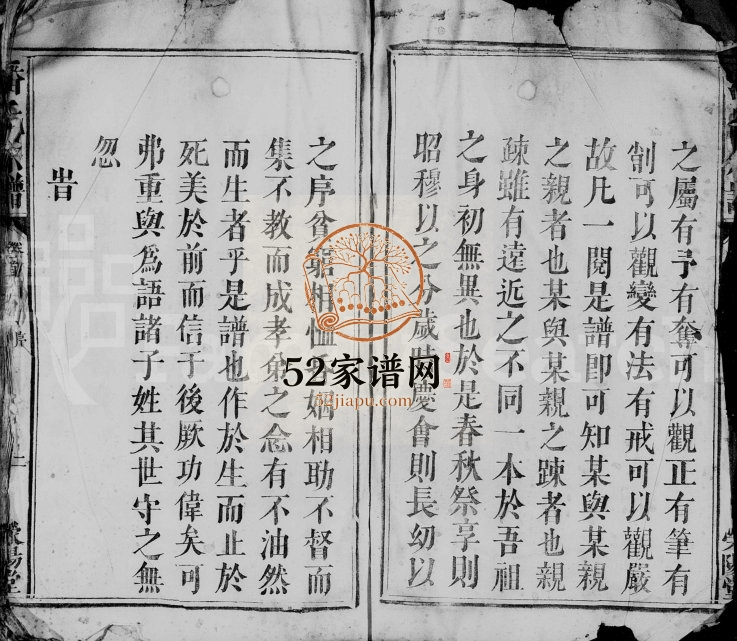 之屬有予有奪可以觀正有筆有
削可以觀變有法有戒可以觀嚴
故凡一閱是譜卽可知某與某親
之親者也某與某親之踈者也親
踈雖有遠近之不同一本於吾祖
之身初無異也於是春秋祭享則
昭穆以之分歲時慶會則長幼以
之序貧窮相恤 婣相助不督而
集不教而成孝弟之念有不油然
而生者乎是譜也作於生而止於
死美於前而信于後厥功偉矣可
弗重與爲語諸子姓其世守之無
忽
旹
潘氏宗譜
卷首
序
二
滎陽堂
滎陽堂
52家谱网
52jiapu.com